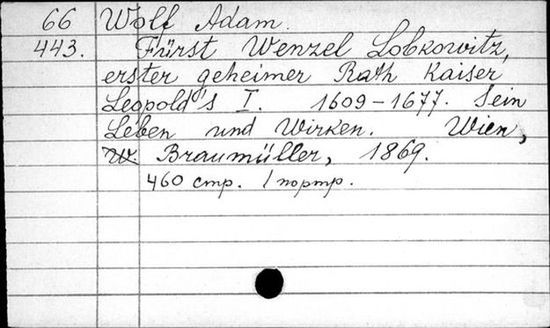 66 Wolf Adam.
443. Fürst Wenzel Lobkowitz,
erster geheimer Rath Kaiser
Leopold's I. 1609-1677. Sein
Leben und Wirken. Wien,
W. Braumüller, 1869.
460 стр. 1 портр.